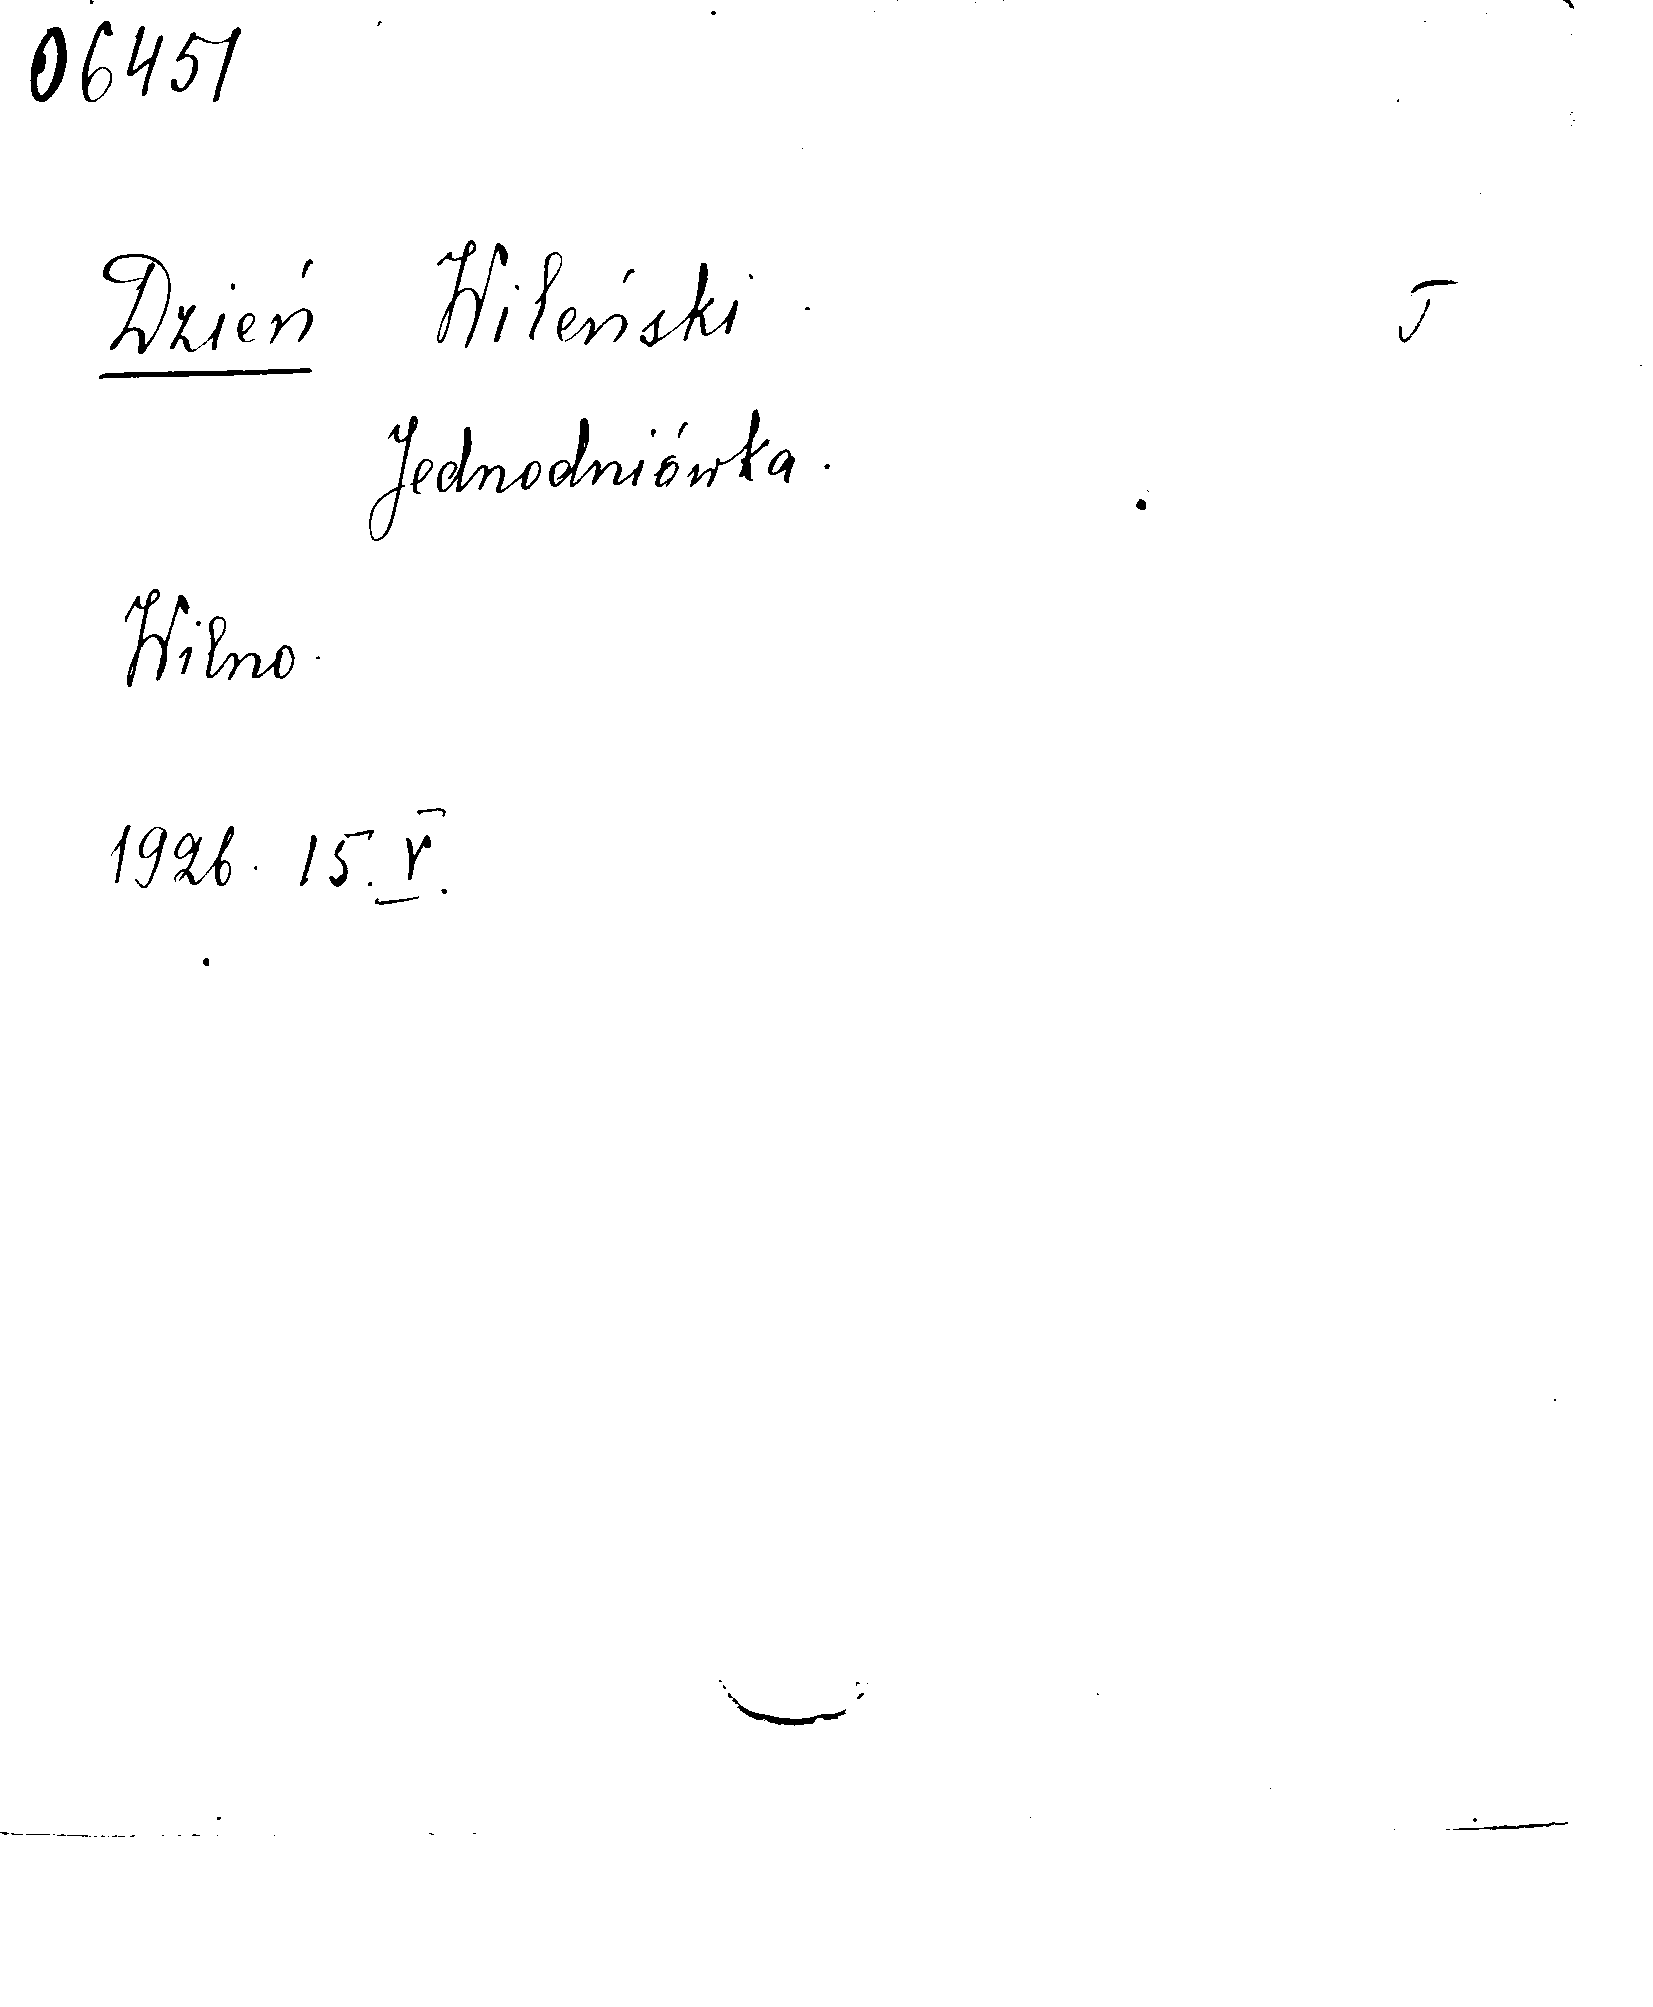 06451
Dzień Wileński. J
Jednodniówka.
Wilno.
1926. 15. V.